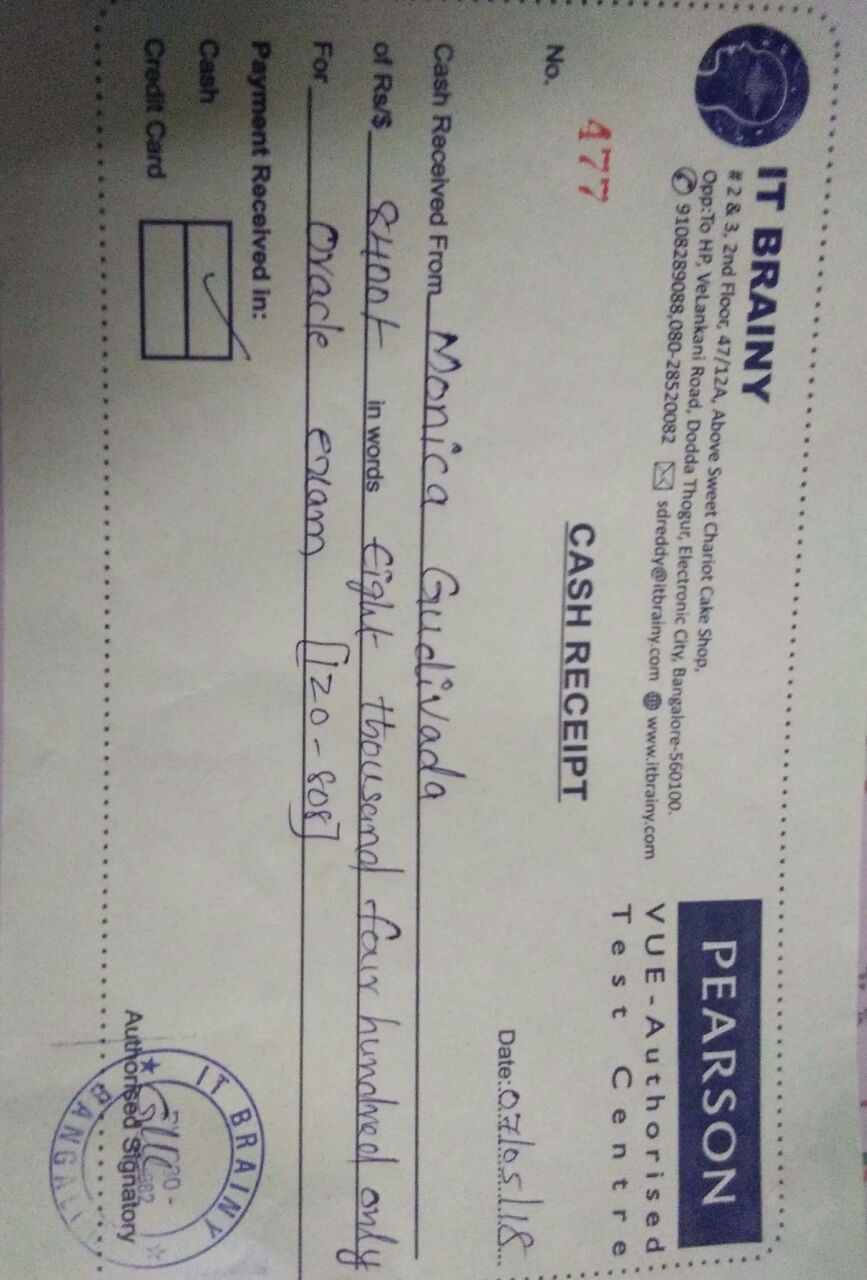 IT BRAINY
# 2 & 3, 2nd Floor, 47/12A, Above Sweet Chariot Cake Shop,
Opp:To HP, VeLankani Road, Dodda Thogur, Electronic City, Bangalore-560100.
9108289088,080-28520082 sdreddy@itbrainy.com www.itbrainy.com
PEARSON
VUE - Authorised
Test Centre
CASH RECEIPT
No. 477
Date: 07/05/18
Cash Received From Monica Gudivada
of Rs/$ 8400/- in words Eight thousand four hundred only
For Oracle exam [1Z0-808]
Payment Received in:
Cash ✓
Credit Card
Authorised Signatory
IT BRAINY